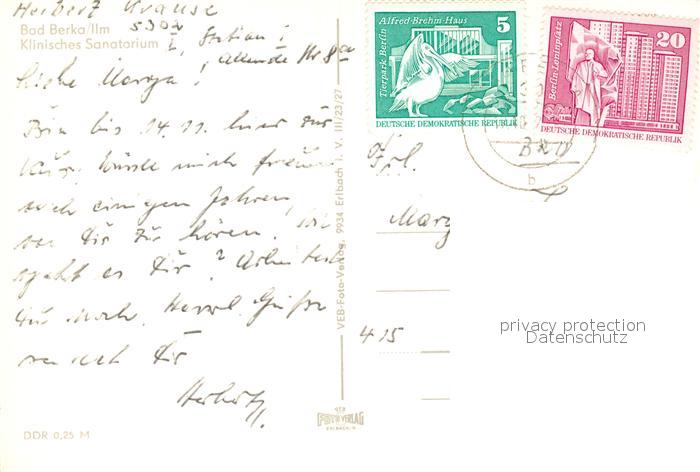 Herbert Krause
Bad Berka/Ilm 5302
Klinisches Sanatorium I, Station
Liebe Marga!
Bin bis 14. 11. hier zur
Kur. Würde mich freuen
nach einigen Jahren,
von Dir zu hören. Wie
geht es Dir? Arbeitest
Du noch. Herzl. Grüße
von
Herbert
DDR 0,25 M
VEB-Foto-Verlag, 9934 Erlbach i. V. III/23/27
VEB
FOTO VERLAG
ERLBACH
Alfred-Brehm-Haus
5
Tierpark Berlin
DEUTSCHE DEMOKRATISCHE REPUBLIK
20
Berlin-Leninplatz
DEUTSCHE DEMOKRATISCHE REPUBLIK
b
Frl.
Marg
415
privacy protection
Datenschutz